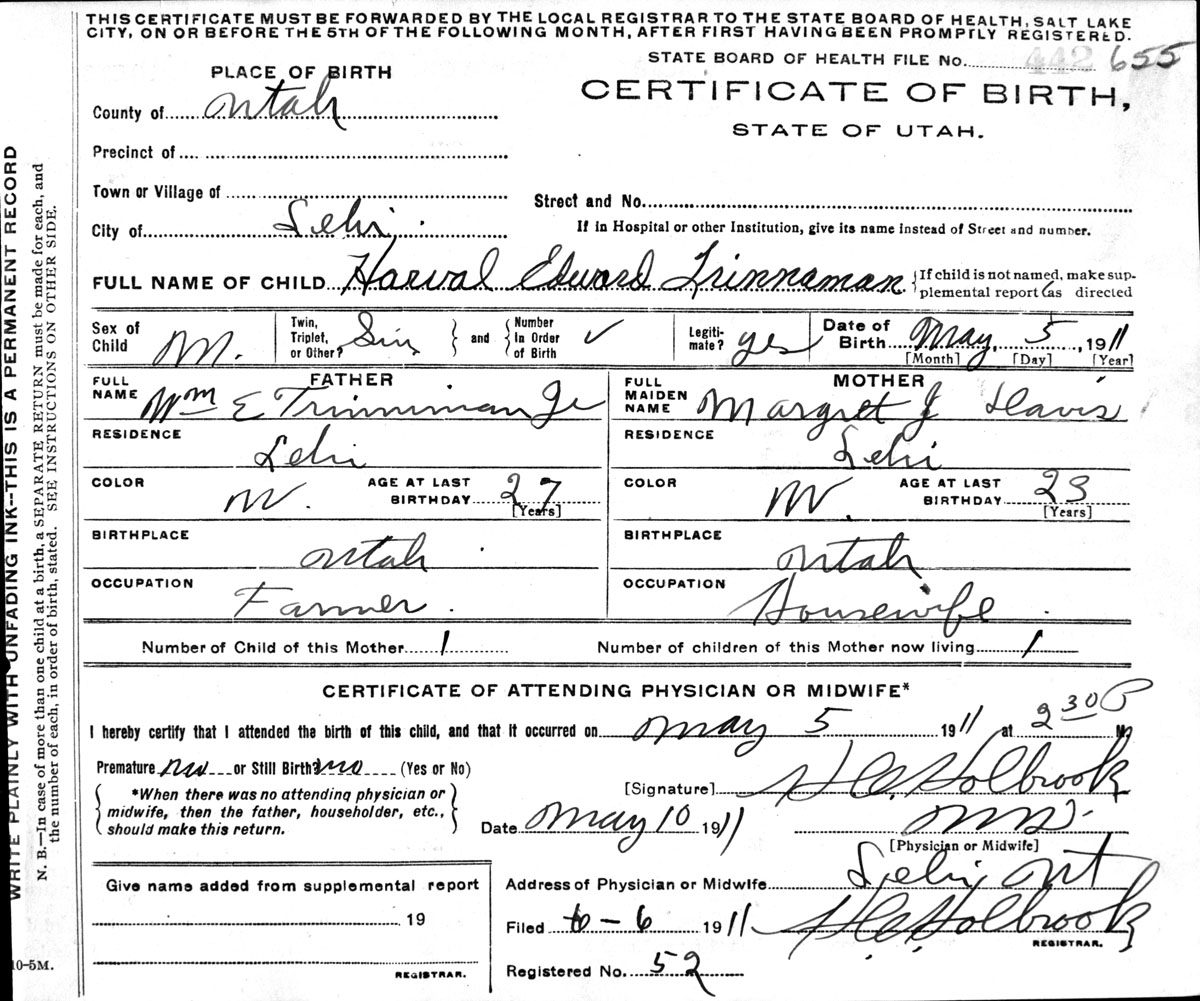 THIS CERTIFICATE MUST BE FORWARDED BY THE LOCAL REGISTRAR TO THE STATE BOARD OF HEALTH, SALT LAKE
CITY, ON OR BEFORE THE 5TH OF THE FOLLOWING MONTH, AFTER FIRST HAVING BEEN PROMPTLY REGISTERED.
STATE BOARD OF HEALTH FILE No. 442 655
PLACE OF BIRTH
CERTIFICATE OF BIRTH,
County of Utah
STATE OF UTAH.
Precinct of
Town or Village of
Street and No.
City of Lehi
If in Hospital or other Institution, give its name instead of Street and number.
FULL NAME OF CHILD Harval Edward Trinnaman { If child is not named, make sup-
plemental report as directed
Sex of Child M. Twin, Triplet, or Other? Sin and Number in Order of Birth ✓ Legiti-mate? yes Date of Birth May 5, 1911
[Month] [Day] [Year]
FATHER
FULL NAME Wm E Trinniman Jr
RESIDENCE Lehi
COLOR W. AGE AT LAST BIRTHDAY 27
[Years]
BIRTHPLACE Utah
OCCUPATION Farmer.
MOTHER
FULL MAIDEN NAME Margret J Davis
RESIDENCE Lehi
COLOR W. AGE AT LAST BIRTHDAY 23
[Years]
BIRTHPLACE Utah
OCCUPATION Housewife
Number of Child of this Mother 1 Number of children of this Mother now living 1
CERTIFICATE OF ATTENDING PHYSICIAN OR MIDWIFE*
I hereby certify that I attended the birth of this child, and that it occurred on May 5 1911 at 2 30 P M
Premature no or Still Birth no (Yes or No)
*When there was no attending physician or
midwife, then the father, householder, etc.,
should make this return.
[Signature] Holbrook
Date May 10 1911 MD.
[Physician or Midwife]
Give name added from supplemental report
19
REGISTRAR.
Address of Physician or Midwife Lehi, Ut
Filed 6-6 1911 Holbrook
REGISTRAR.
Registered No. 52
WRITE PLAINLY WITH UNFADING INK--THIS IS A PERMANENT RECORD
N. B.—In case of more than one child at a birth, a SEPARATE RETURN must be made for each, and
the number of each, in order of birth, stated. SEE INSTRUCTIONS ON OTHER SIDE.
10-5M.